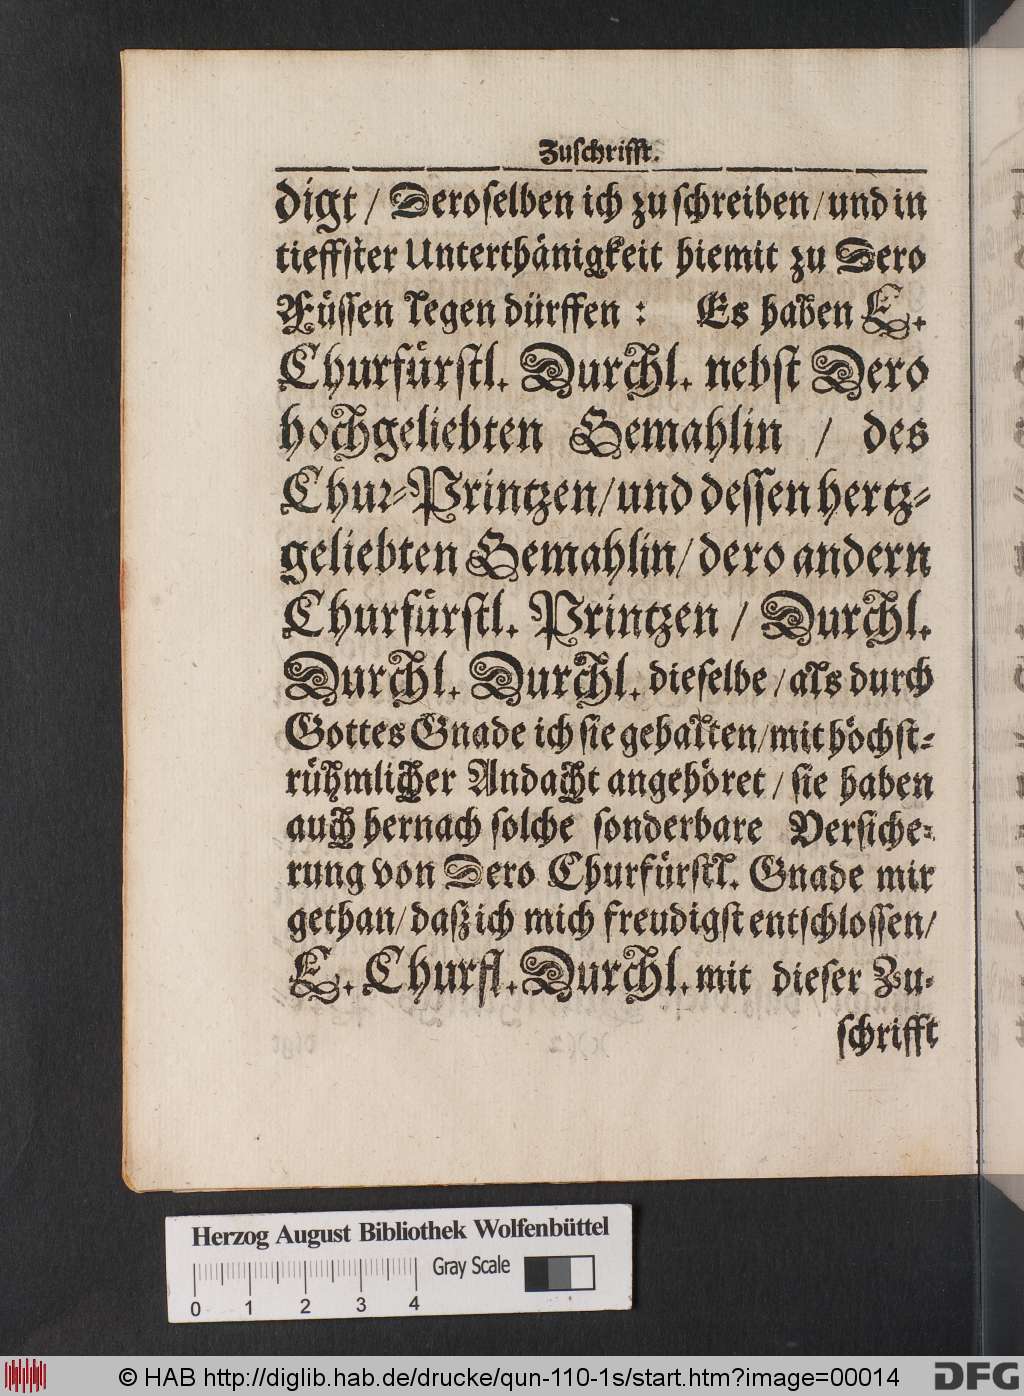 Zuschrifft.
digt / Deroselben ich zu schreiben / und in
tieffster Unterthänigkeit hiemit zu Dero
Füssen legen dürffen : Es haben E.
Churfürstl. Durchl. nebst Dero
hochgeliebten Gemahlin / des
Chur-Printzen / und dessen hertz-
geliebten Gemahlin / dero andern
Churfürstl. Printzen / Durchl.
Durchl. Durchl. dieselbe / als durch
Gottes Gnade ich sie gehalten / mit höchst-
rühmlicher Andacht angehöret / sie haben
auch hernach solche sonderbare Versiche-
rung von Dero Churfürstl. Gnade mir
gethan / daß ich mich freudigst entschlossen /
E. Churfl. Durchl. mit dieser Zu-
schrifft
Herzog August Bibliothek Wolfenbüttel
Gray Scale
0 1 2 3 4
© HAB http://diglib.hab.de/drucke/qun-110-1s/start.htm?image=00014
DFG